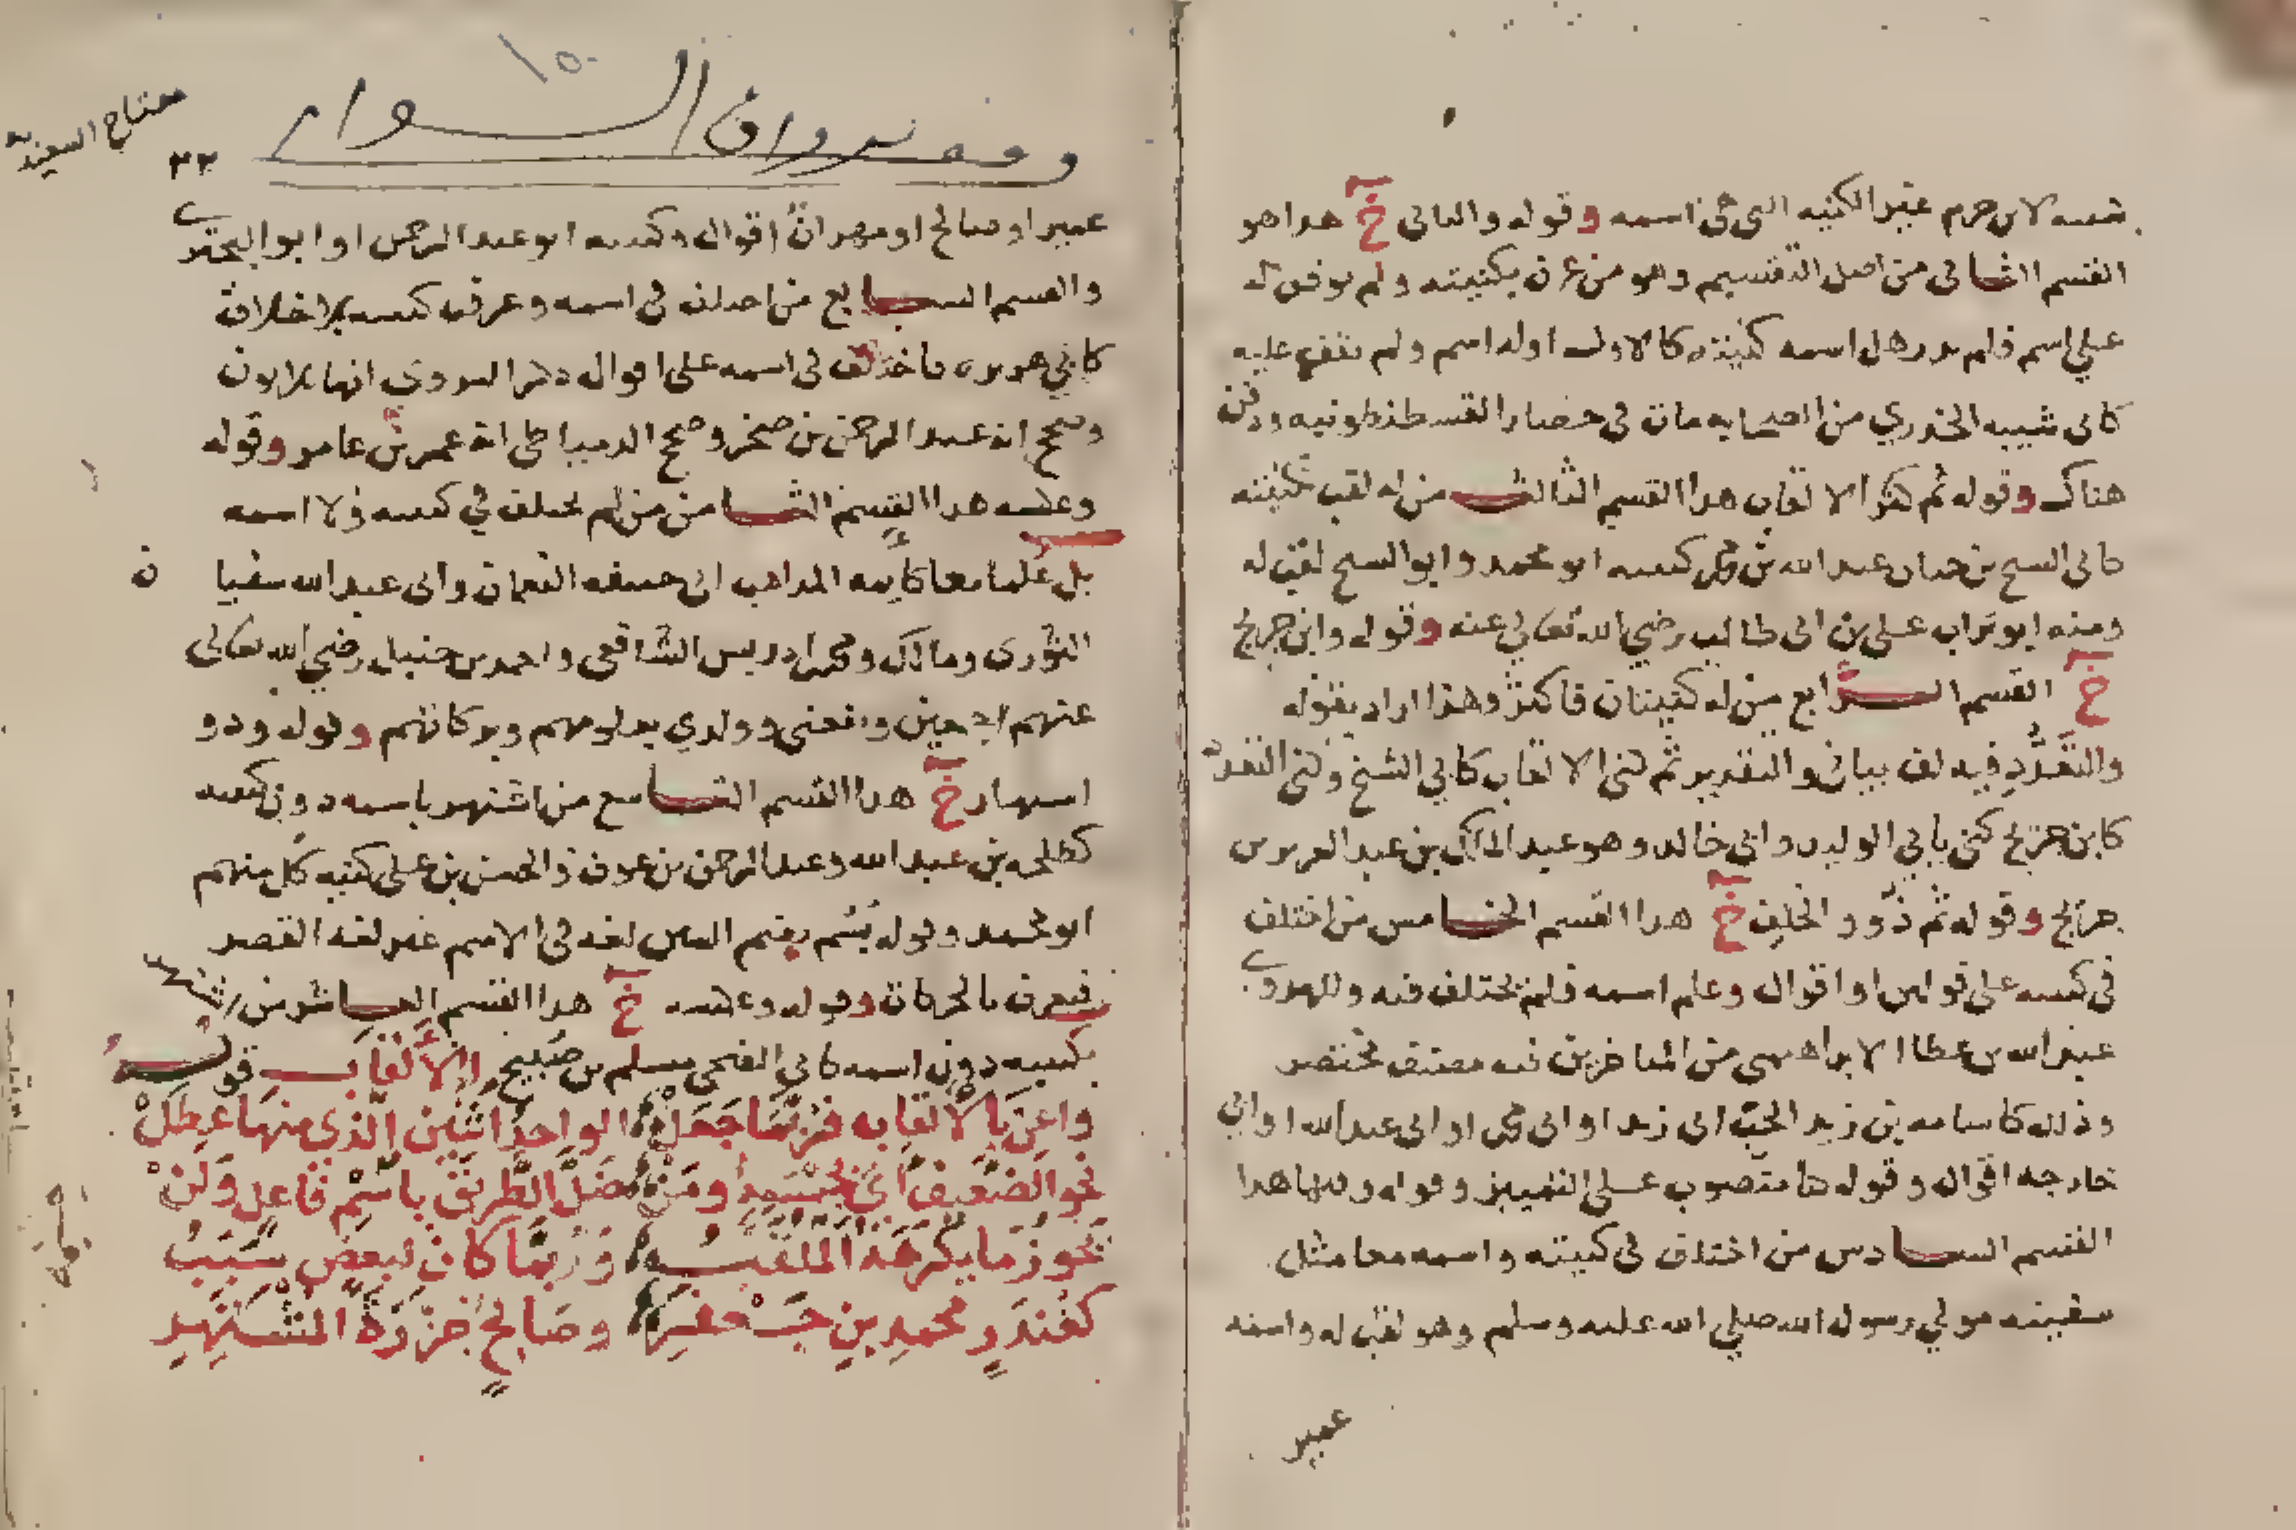 كنيته لابن حزم غير الكنيه التي هي اسمه وقوله والثاني خ هذا هو
القسم الثاني من اصل التقسيم وهو من عرف بكنيته ولم يوقف له
علي اسم فلم يدر هل اسمه كنيته كالاول اوله اسم ولم نقف عليه
كابي شيبه الخدري من الصحابه مات في حصار القسطنطونيه ودفن
هناك وقوله ثم كنى الالقاب هذا القسم الثالث من له لقب كنيته
كابي الشيخ بن حيان عبد الله بن محمد كنيته ابو محمد وابو الشيخ لقب له
ومنه ابو تراب علي بن ابي طالب رضي الله تعالي عنه وقوله وابن جريج
خ القسم الرابع من له كنيتان فاكثر وهذا اراد بقوله
والتعدد فيه لف بيان والتقدير ثم كنى الالقاب كابي الشيخ وكنى التعدد
كابن جريج كني بابي الوليد وابي خالد وهو عبد الملك بن عبد العزيز بن
جريج وقوله ثم ذوو الخلف خ هذا القسم الخامس من اختلف
في كنيته علي قولين او اقوال وعلم اسمه فلم يختلف فيه وللهروي
عبد الله بن عطا الابراهيمي من المتاخرين فيه مصنف مختصر
وذلك كاسامه بن زيد الحب ابي زيد او ابي محمد او ابي عبد الله او ابي
خارجه اقوال وقوله ها منصوب علي التمييز وقوله وفيها هذا
القسم السادس من اختلف في كنيته واسمه معا مثل
سفينه مولي رسول الله صلي الله عليه وسلم وهو لقب له واسمه
عمير
١٥٠
٣٣
عمير او صالح او مهران اقوال وكنيته ابو عبد الرحمن او ابو البختري
والقسم السابع من اختلف في اسمه وعرف كنيته بلا خلاف
كابي هريره فاختلف في اسمه علي اقوال ذكر النووي انها ثلاثون
وصحح انه عبد الرحمن بن صخر وصحح الدمياطي انه عمير بن عامر وقوله
وعكسه هذا القسم الثامن من لم يختلف في كنيته ولا اسمه
بل علما معا كايمه المذاهب ابي حنيفه النعمان وابي عبد الله سفيان
الثوري ومالك ومحمد ادريس الشافعي واحمد بن حنبل رضي الله تعالي
عنهم اجمعين ونفعني وولدي بعلومهم وبركاتهم وقوله وذو
اشتهار خ هذا القسم التاسع من اشتهر باسمه دون كنيته
كطلحه بن عبد الله وعبد الرحمن بن عوف والحسن بن علي كنيه كل منهم
ابو محمد وقوله بسم بضم السين لغه في الاسم غير لغه القصر
فيعرف بالحركات وقوله وعكسه خ هذا القسم العاشر من اشتهر
بكنيته دون اسمه كابي الضحي مسلم بن صبيح الالقاب قوله
واعن بالالقاب فربما جعل الواحد اثنين الذي منها عطل
نحو الضعيف اي بجسمه ومن ضل الطريق باسم فاعل ولن
يجوز ما يكرهه الملقب وربما كان لبعض سبب
كغندر محمد بن جعفر وصالح جزرة المشتهر